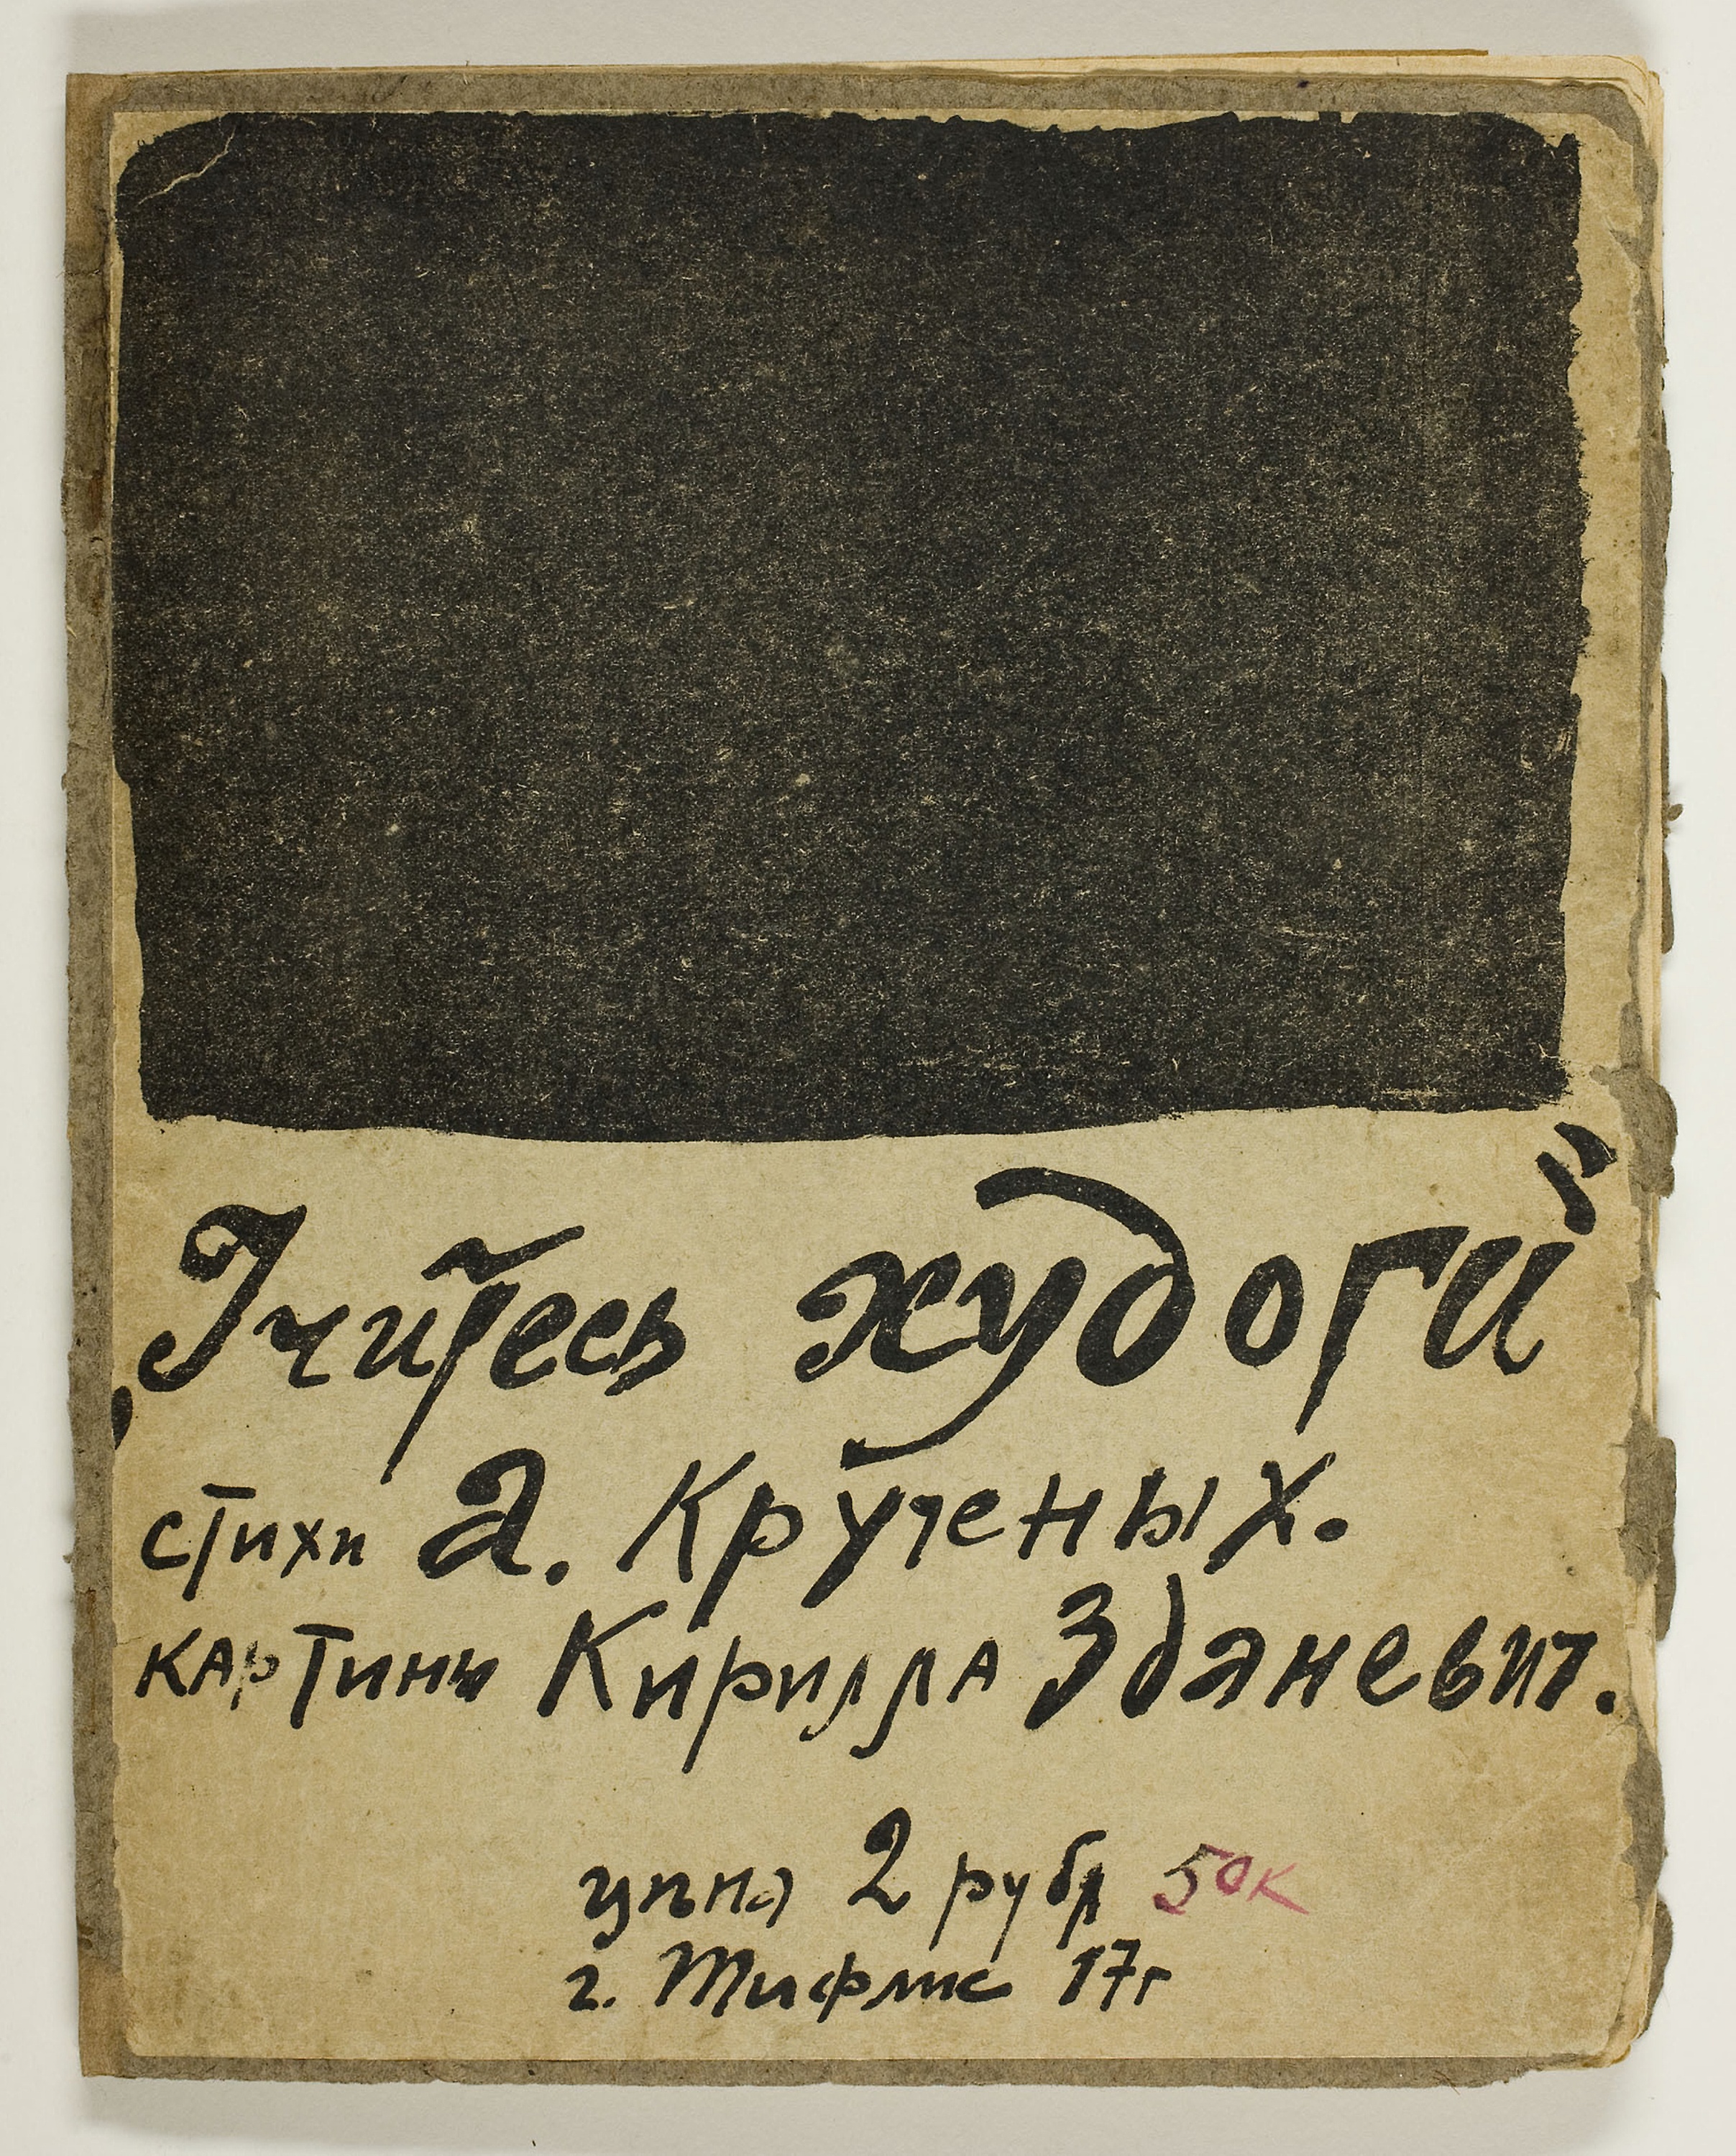 „Учитесь худоги"
стихи А. Крученых.
картины Кирилла Зданевич.
цѣна 2 рубл 50к
г. Тифлис 17г